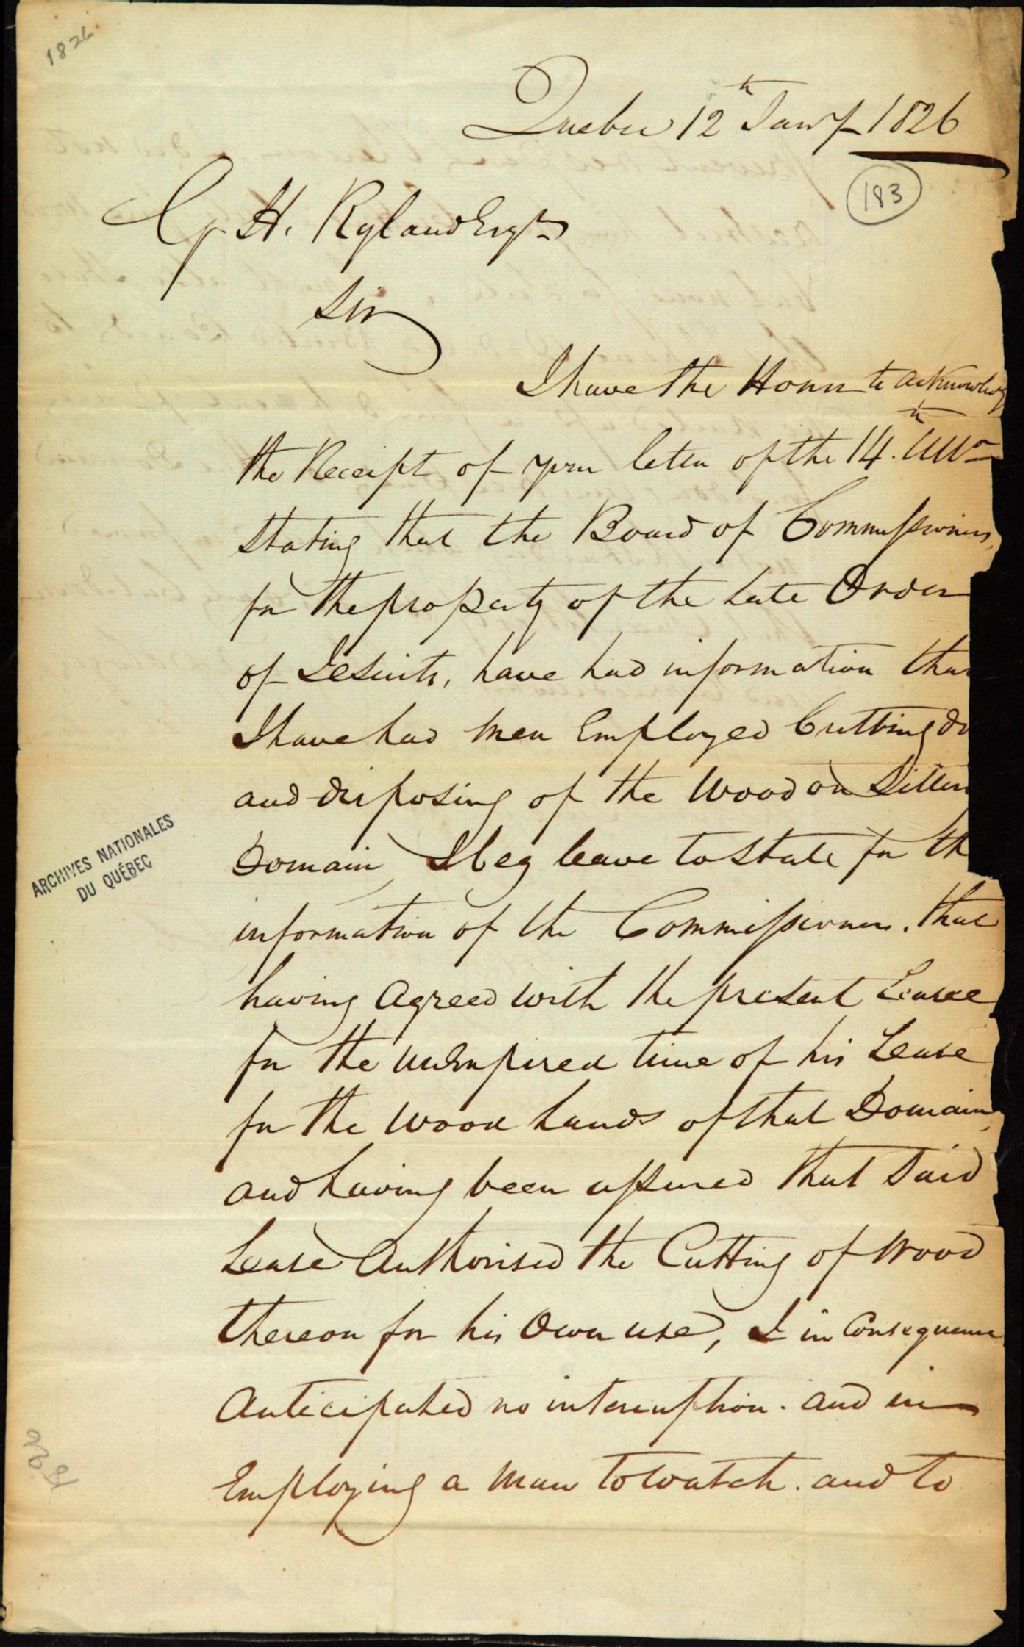 1826
Quebec 12th Jany 1826
183
G. H. Ryland Esqr
Sir
I have the Honor to acknowledg
the Receipt of your letter of the 14th Ulto
stating that the Board of Commissioners
for the property of the late Order
of Jesuits, have had information tha
I have had men Employed Cutting do
and disposing of the Wood on Siller
Domain, I beg leave to state for th
information of the Commissioners. that
having Agreed with the present Leasee
for the unexpired time of his Lease
for the Wood Lands of that Domain,
and having been assured that said
Lease Authorised the Cutting of Wood
thereon for his Own use, I in Consequence
Anticipated no interruption. and in
Employing a man to watch. and to
ARCHIVES NATIONALES
DU QUÉBEC
1826